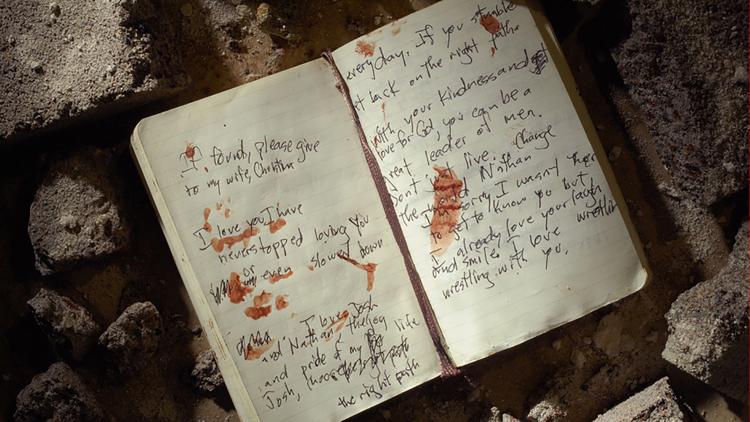 If found, please give
to my wife, Christina
I love you I have
never stopped loving you
or even slowed down
I love Josh
and Nathan. The joy
and pride of my life
Josh, choose
the right path
everyday. If you stumble
get back on the right path.
With your kindness and
love for God, you can be a
great leader of men.
Don't just live. Change
the world Nathan
I'm sorry I wasn't here
to get to know you but
I already love your laugh
and smile. I love
wrestling with you.